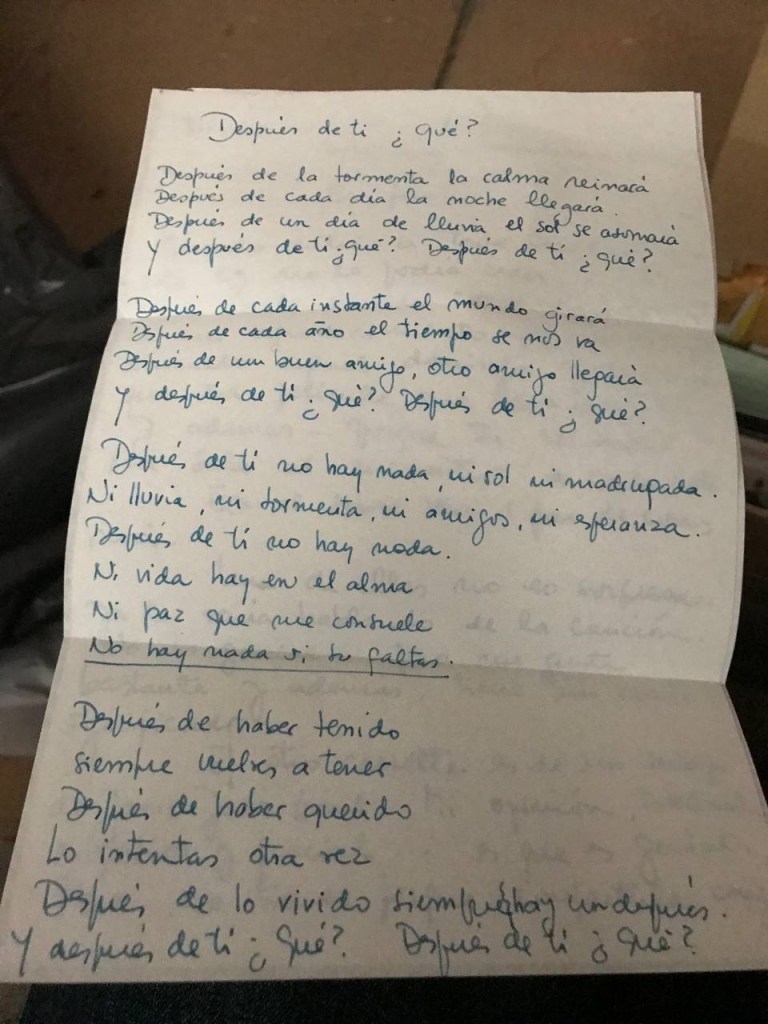 Después de ti ¿qué?
Después de la tormenta la calma reinará
Después de cada día la noche llegará.
Después de un día de lluvia el sol se asomará
Y después de ti ¿qué? Después de ti ¿qué?
Después de cada instante el mundo girará
Después de cada año el tiempo se nos va
Después de un buen amigo, otro amigo llegará
Y después de ti ¿qué? Después de ti ¿qué?
Después de ti no hay nada, ni sol ni madrugada.
Ni lluvia, ni tormenta, ni amigos, ni esperanza.
Después de ti no hay nada.
Ni vida hay en el alma
Ni paz que me consuele
No hay nada si tu faltas.
Después de haber tenido
siempre vuelves a tener
Después de haber querido
Lo intentas otra vez
Después de lo vivido siempre hay un después.
Y después de ti ¿Qué? Después de ti ¿Qué?